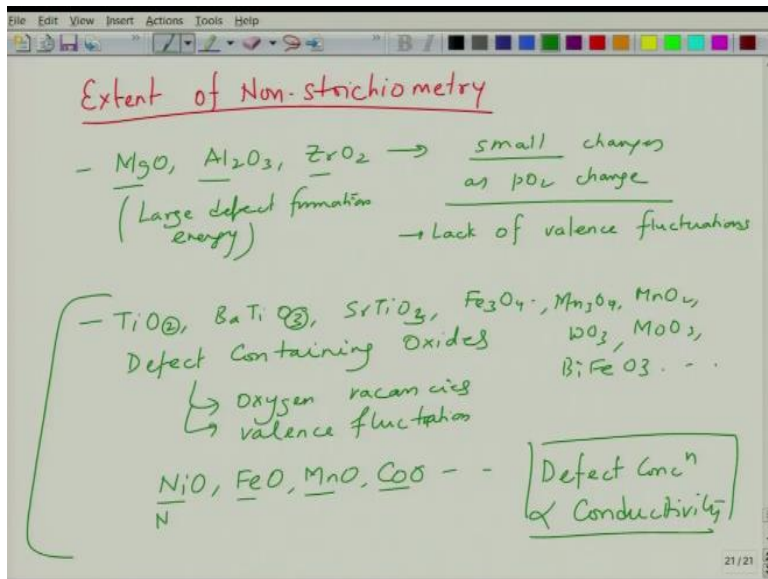 File Edit View Insert Actions Tools Help
Extent of Non-stoichiometry
- MgO, Al2O3, ZrO2 → small changes
as pO2 change
(Large defect formation
energy)
→ Lack of valence fluctuations
- TiO2, BaTiO3, SrTiO3, Fe3O4, Mn3O4, MnO2,
WO3, MoO3,
BiFeO3 - - .
Defect Containing Oxides
↳ Oxygen vacancies
↳ valence fluctuation
NiO, FeO, MnO, CoO - -
N
Defect Concⁿ
∝ Conductivity
21 / 21